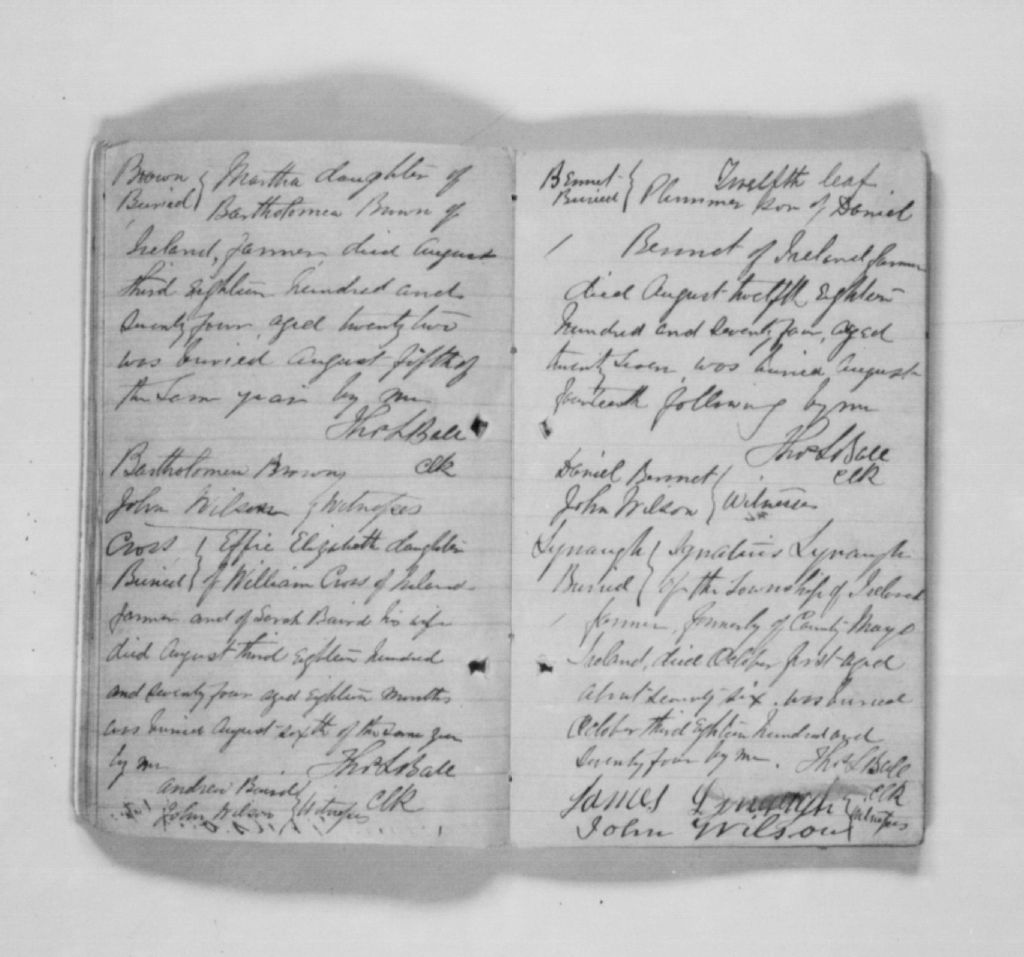 Brown } Martha daughter of
Buried } Bartholomew Brown of
Ireland, farmer, died August
third Eighteen hundred and
Seventy four, aged twenty two
was buried August fifth of
the Same year by me
Thos L Ball
Bartholomew Brown Clk
John Wilson } Witnesses
Cross } Effie Elizabeth daughter
Buried } of William Cross of Ireland
farmer and of Sarah Baird his wife
died August third Eighteen hundred
and Seventy four aged Eighteen months
was buried August sixth of the Same year
by me Thos L Ball
Andrew Baird
John Wilson } Witnesses Clk
Twelfth leaf
Bennet } Plummer son of Daniel
Buried }
Bennet of Ireland farmer
died August twelfth Eighteen
hundred and Seventy four, aged
twenty Seven, was buried August
fourteenth following by me
Thos L Ball
Clk
Daniel Bennet
John Wilson } Witnesses
Lynaugh } Ignatius Lynaugh
Buried } Of the Township of Ireland
farmer, formerly of County Mayo
Ireland, died October first aged
about Seventy six, was buried
October third Eighteen hundred and
Seventy four by me. Thos L Ball
Clk
James Lynaugh } Witnesses
John Wilson